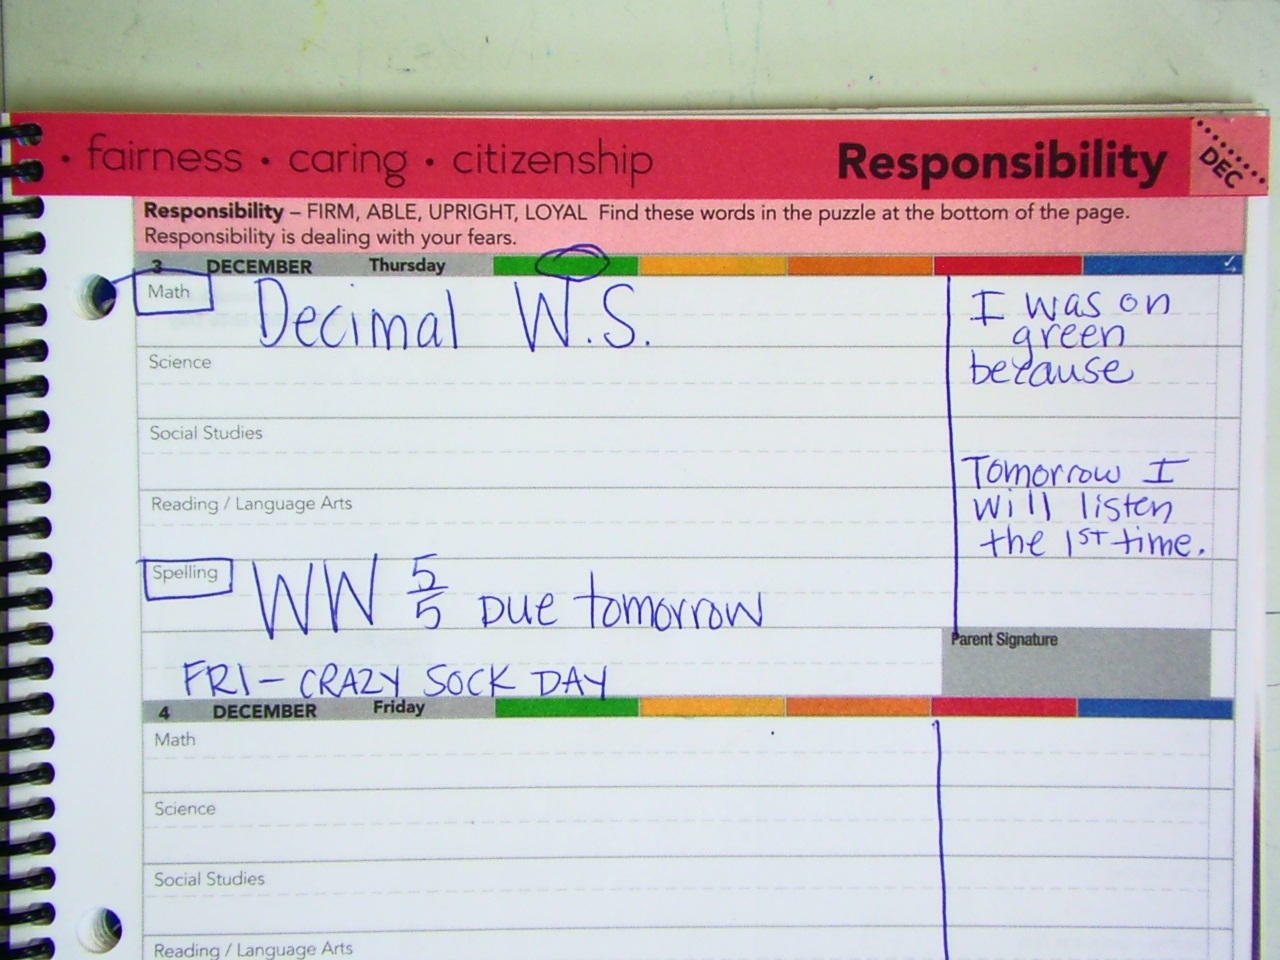 • fairness • caring • citizenship Responsibility DEC
Responsibility – FIRM, ABLE, UPRIGHT, LOYAL Find these words in the puzzle at the bottom of the page.
Responsibility is dealing with your fears.
3 DECEMBER Thursday
Math Decimal W.S.
I was on
green
because
Science
Social Studies
Tomorrow I
will listen
the 1ST time.
Reading / Language Arts
Spelling WW 5/5 Due tomorrow
Parent Signature
FRI – CRAZY SOCK DAY
4 DECEMBER Friday
Math
Science
Social Studies
Reading / Language Arts